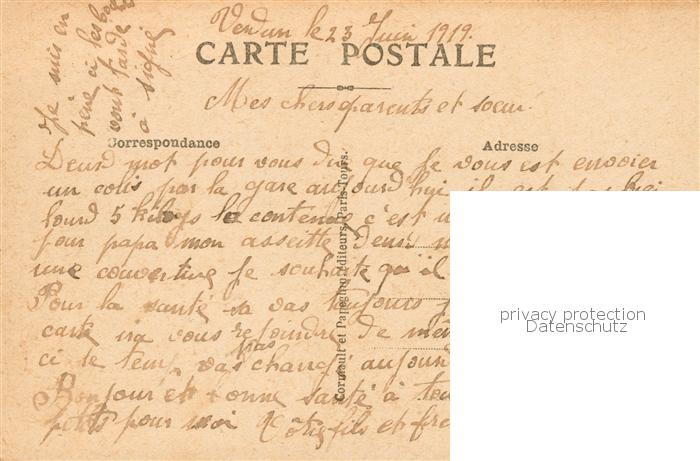 Verdun le 23 Juin 1919.
CARTE POSTALE
Mes chers parents et soeur
Correspondance
Adresse
Deux mot pour vous dire que Je vous est envoier
un colis par la gare aujourd'hui il est
lourd 5 kilogs le contenue c'est
pour papa mon assiette Deux
une couverture Je souhaite qu'il
Pour la santé sa vas toujours
carte ira vous rejoindre De même
ci le temp vas pas changé aujour
Bonjour et bonne santé à
petits pour moi Votre fils et
Je suis en
à signé
Cormault et Papeghin, éditeurs, Paris-Tours.
privacy protection
Datenschutz